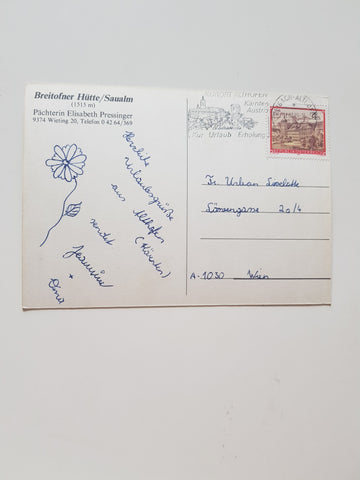 Breitofner Hütte/Saualm
(1515 m)
Pächterin Elisabeth Pressinger
9374 Wieting 20, Telefon 0 42 64/369
Herzliche
Urlaubsgrüße
aus Althofen
(Kärnten)
sendet
Jasmin
+
Oma
KURORT ALTHOFEN
Kärnten
Austria
Für Urlaub Erholung
Fr. Urban Liselotte
20/4
A-1030 Wien